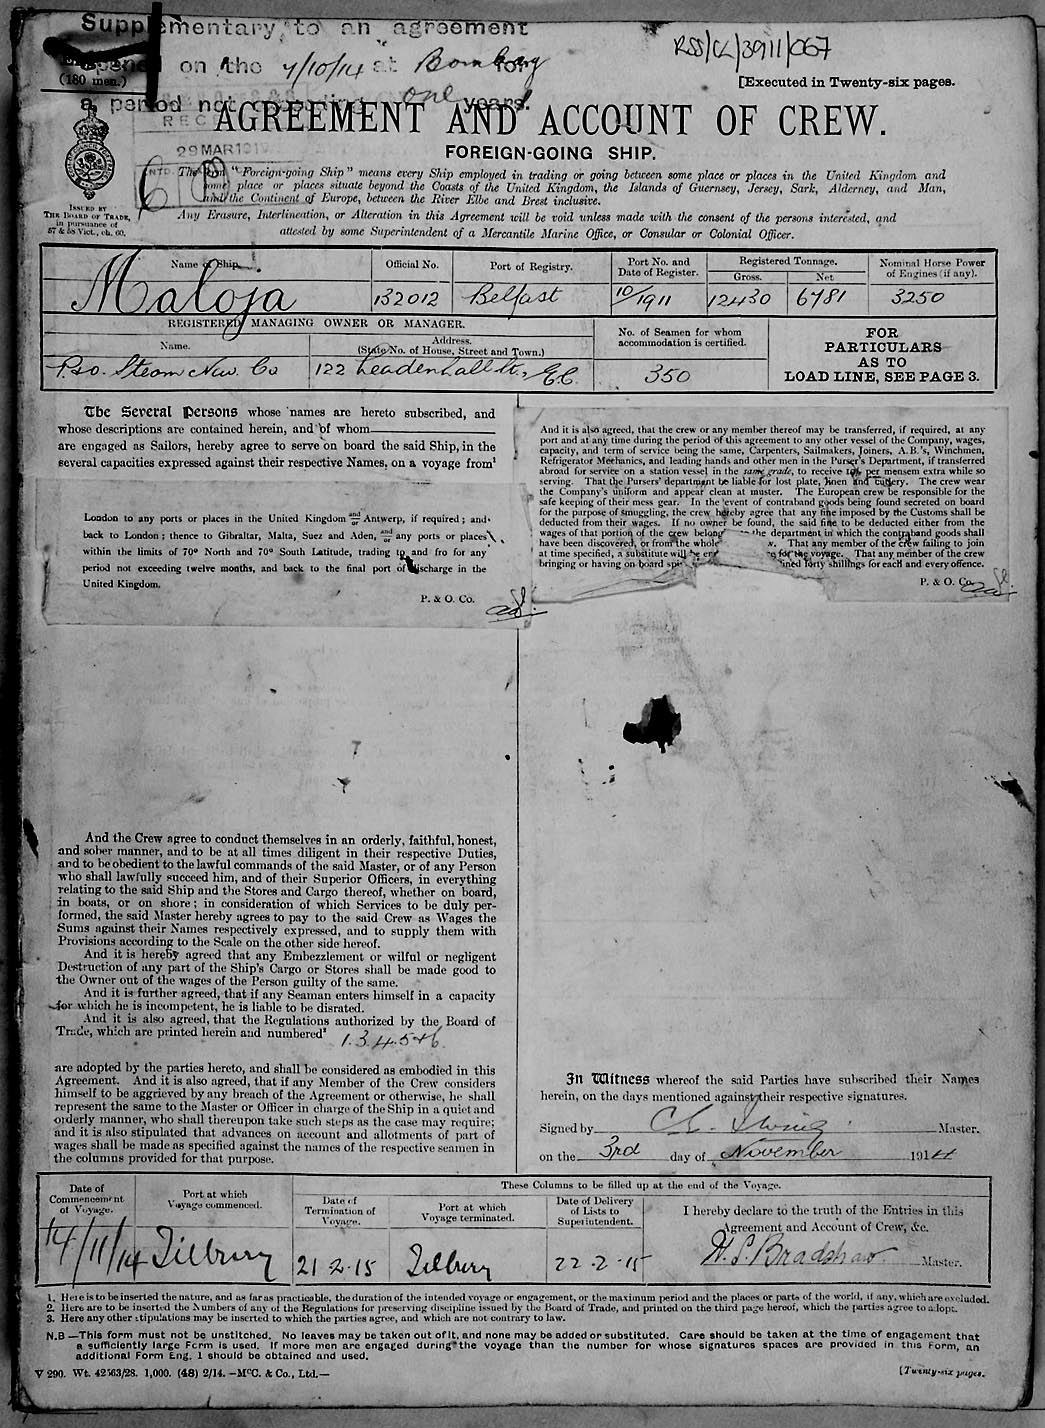 Supplementary to an agreement
opened on the 7/10/14 at Bombay for
a period not exceeding one years.
RSS/CL/3911/067
(180 men.)
[Executed in Twenty-six pages.
AGREEMENT AND ACCOUNT OF CREW.
29 MAR 191
FOREIGN-GOING SHIP.
The term "Foreign-going Ship" means every Ship employed in trading or going between some place or places in the United Kingdom and
some place or places situate beyond the Coasts of the United Kingdom, the Islands of Guernsey, Jersey, Sark, Alderney, and Man,
and the Continent of Europe, between the River Elbe and Brest inclusive.
Any Erasure, Interlineation, or Alteration in this Agreement will be void unless made with the consent of the persons interested, and
attested by some Superintendent of a Mercantile Marine Office, or Consular or Colonial Officer.
ISSUED BY
THE BOARD OF TRADE,
in pursuance of
57 & 58 Vict., ch. 60.
Name of Ship. Official No. Port of Registry. Port No. and Date of Register. Registered Tonnage. Gross. Net Nominal Horse Power of Engines (if any).
Maloja 132012 Belfast 10/1911 12430 6781 3250
REGISTERED MANAGING OWNER OR MANAGER.
Name. Address. (State No. of House, Street and Town.)
No. of Seamen for whom accommodation is certified.
P&O. Steam Nav. Co 122 Leadenhall St., E.C. 350
FOR
PARTICULARS
AS TO
LOAD LINE, SEE PAGE 3.
The Several Persons whose names are hereto subscribed, and
whose descriptions are contained herein, and of whom
are engaged as Sailors, hereby agree to serve on board the said Ship, in the
several capacities expressed against their respective Names, on a voyage from¹
London to any ports or places in the United Kingdom and/or Antwerp, if required; and
back to London; thence to Gibraltar, Malta, Suez and Aden, and/or any ports or places
within the limits of 70° North and 70° South Latitude, trading to and fro for any
period not exceeding twelve months, and back to the final port of discharge in the
United Kingdom.
P. & O. Co.
And it is also agreed, that the crew or any member thereof may be transferred, if required, at any
port and at any time during the period of this agreement to any other vessel of the Company, wages,
capacity, and term of service being the same, Carpenters, Sailmakers, Joiners, A.B.'s, Winchmen,
Refrigerator Mechanics, and leading hands and other men in the Purser's Department, if transferred
abroad for service on a station vessel in the same grade, to receive 10s. per mensem extra while so
serving. That the Pursers' department be liable for lost plate, linen and cutlery. The crew wear
the Company's uniform and appear clean at muster. The European crew be responsible for the
safe keeping of their mess gear. In the event of contraband goods being found secreted on board
for the purpose of smuggling, the crew hereby agree that any fine imposed by the Customs shall be
deducted from their wages. If no owner be found, the said fine to be deducted either from the
wages of that portion of the crew belong the department in which the contraband goods shall
have been discovered, or from the whole w. That any member of the crew failing to join
at time specified, a substitute will be en for the voyage. That any member of the crew
bringing or having on board spi ined forty shillings for each and every offence.
P. & O. Co.
And the Crew agree to conduct themselves in an orderly, faithful, honest,
and sober manner, and to be at all times diligent in their respective Duties,
and to be obedient to the lawful commands of the said Master, or of any Person
who shall lawfully succeed him, and of their Superior Officers, in everything
relating to the said Ship and the Stores and Cargo thereof, whether on board,
in boats, or on shore; in consideration of which Services to be duly per-
formed, the said Master hereby agrees to pay to the said Crew as Wages the
Sums against their Names respectively expressed, and to supply them with
Provisions according to the Scale on the other side hereof.
And it is hereby agreed that any Embezzlement or wilful or negligent
Destruction of any part of the Ship's Cargo or Stores shall be made good to
the Owner out of the wages of the Person guilty of the same.
And it is further agreed, that if any Seaman enters himself in a capacity
for which he is incompetent, he is liable to be disrated.
And it is also agreed, that the Regulations authorized by the Board of
Trade, which are printed herein and numbered² 1.3.4.5+6.
are adopted by the parties hereto, and shall be considered as embodied in this
Agreement. And it is also agreed, that if any Member of the Crew considers
himself to be aggrieved by any breach of the Agreement or otherwise, he shall
represent the same to the Master or Officer in charge of the Ship in a quiet and
orderly manner, who shall thereupon take such steps as the case may require;
and it is also stipulated that advances on account and allotments of part of
wages shall be made as specified against the names of the respective seamen in
the columns provided for that purpose.
In Witness whereof the said Parties have subscribed their Names
herein, on the days mentioned against their respective signatures.
Signed by Master.
on the 3rd day of November 1914
These Columns to be filled up at the end of the Voyage.
Date of Commencement of Voyage. Port at which Voyage commenced. Date of Termination of Voyage. Port at which Voyage terminated. Date of Delivery of Lists to Superintendent.
14/11/14 Tilbury 21-2-15 Tilbury 22-2-15
I hereby declare to the truth of the Entries in this
Agreement and Account of Crew, &c.
Bradshaw Master.
1. Here is to be inserted the nature, and as far as practicable, the duration of the intended voyage or engagement, or the maximum period and the places or parts of the world, if any, which are excluded.
2. Here are to be inserted the Numbers of any of the Regulations for preserving discipline issued by the Board of Trade, and printed on the third page hereof, which the parties agree to adopt.
3. Here any other stipulations may be inserted to which the parties agree, and which are not contrary to law.
N.B —This form must not be unstitched. No leaves may be taken out of it, and none may be added or substituted. Care should be taken at the time of engagement that
a sufficiently large Form is used. If more men are engaged during the voyage than the number for whose signatures spaces are provided in this Form, an
additional Form Eng. 1 should be obtained and used.
V 290. Wt. 42563/28. 1,000. (48) 2/14. —McC. & Co., Ltd.—
[Twenty-six pages.